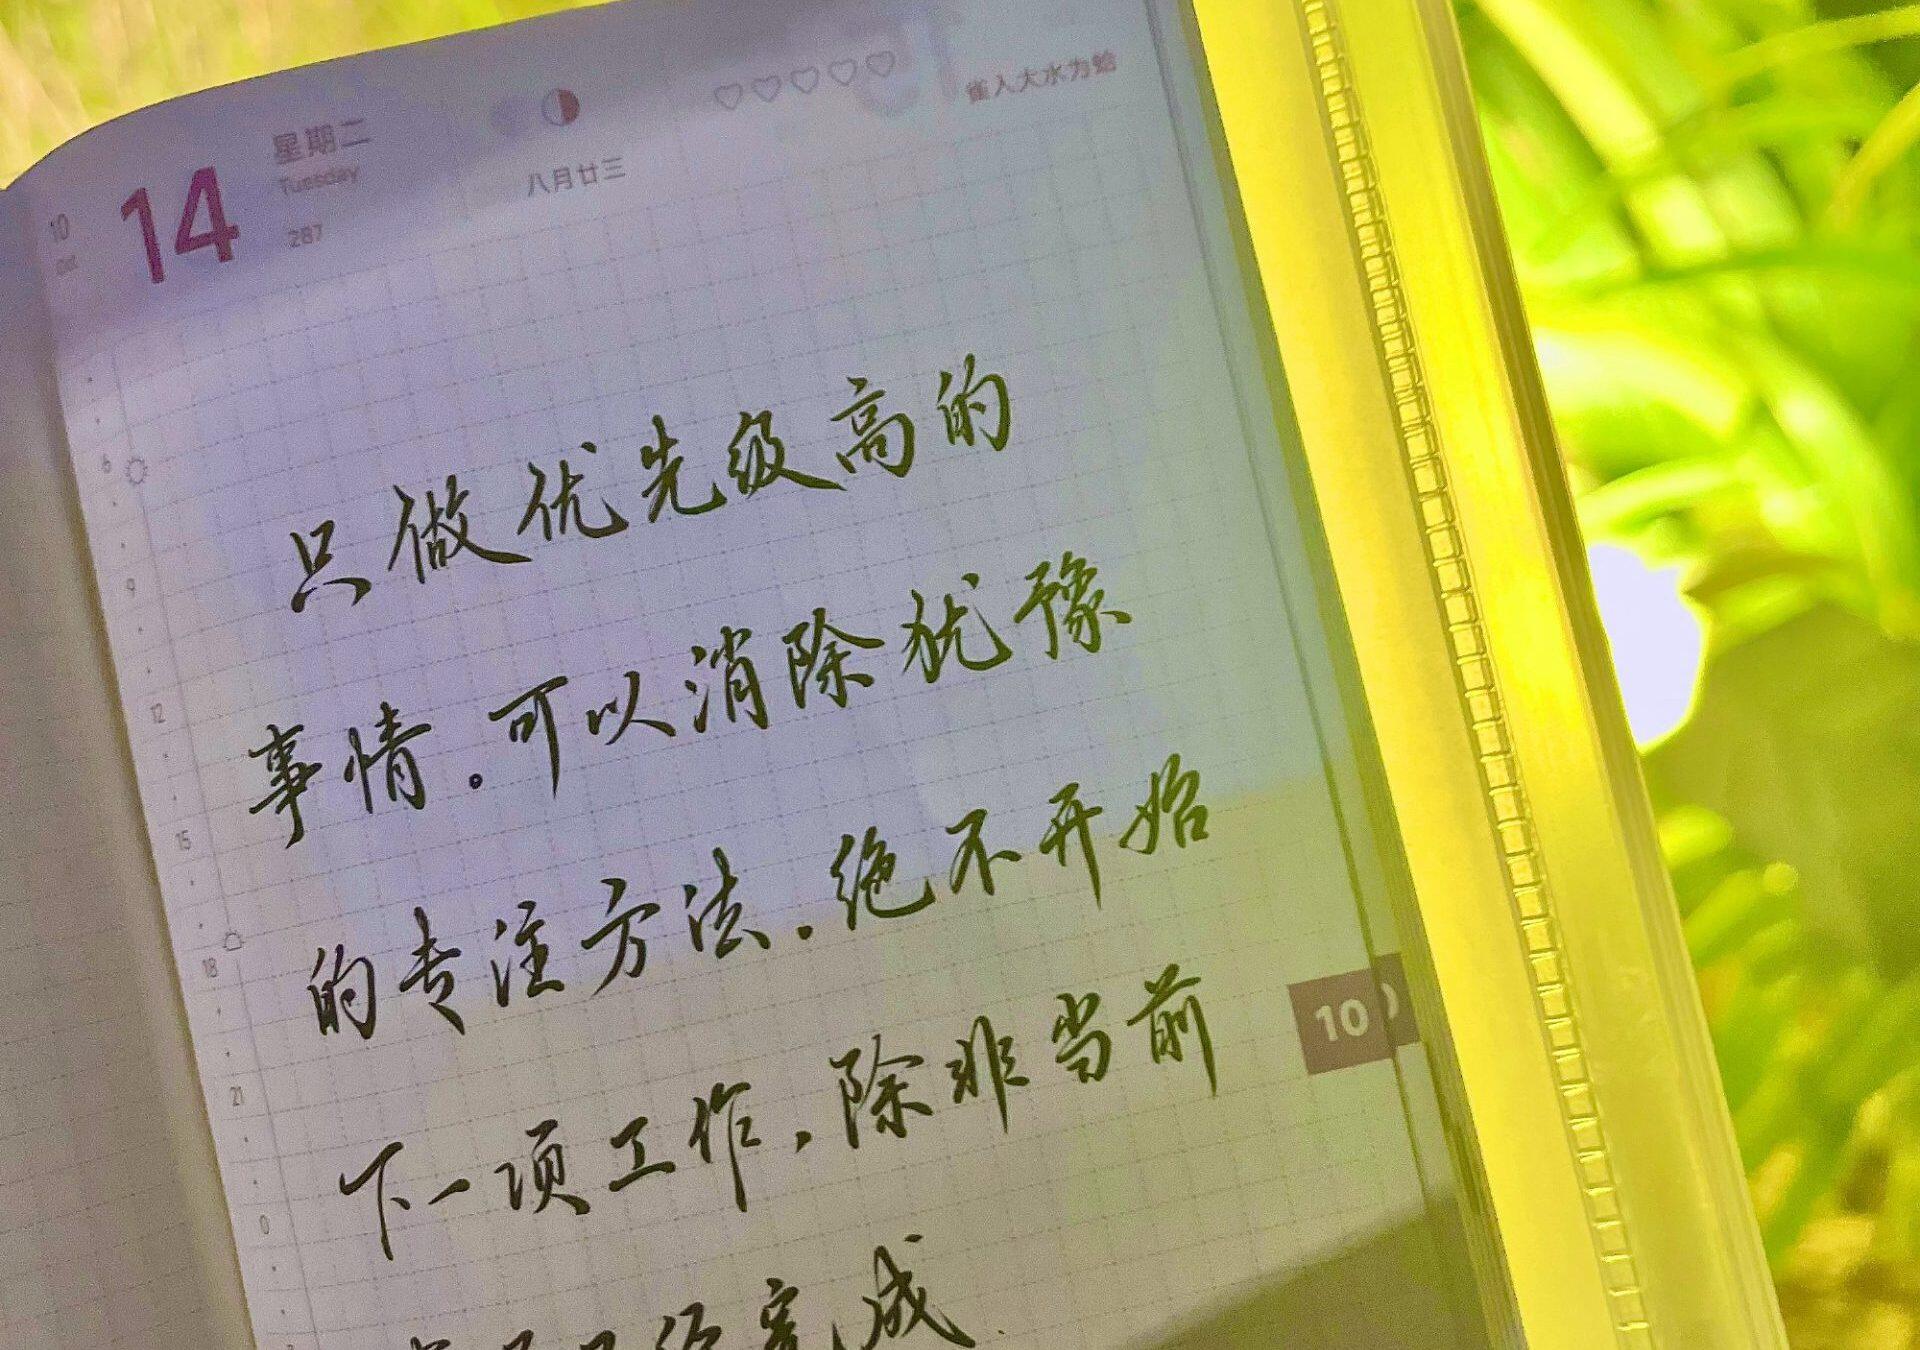 10
Oct
14
星期二
Tuesday
287
八月廿三
雀入大水为蛤
6
9
12
15
18
21
0
只做优先级高的
事情。可以消除犹豫
的专注方法.绝不开始
下一项工作,除非当前
已经完成
10